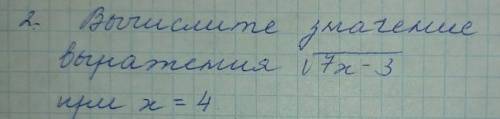 2. Вычислите значение
выражения √7x-3
при x = 4